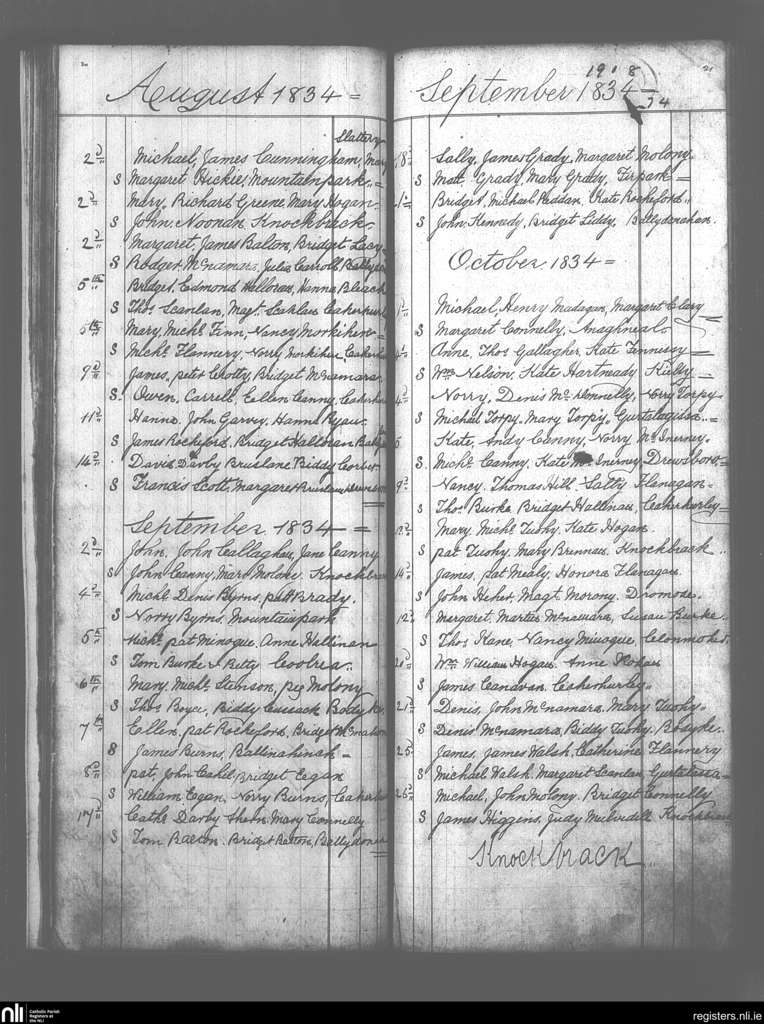 August 1834 =
Slattery
2d Michael, James Cunningham, Mary
S Margaret Hickie, Mountainpark
2d Mary, Richard Greene, Mary Hogan
S John Noonan Knockback
2d Margaret, James Balton, Bridget Lacy
S Rodger McNamara, Julia Carroll
5th Bridget, Edmond Halloran, Hanna Bleach
S Thos Scanlan, Magt. Scanlan
5th Mary, Michl Finn, Nancy
S Michl Flannery, Norry
9d James, peter Clotty, Bridget McNamara
S. Owen Carrell, Eellen Canny,
11d Hanna, John Garvey, Hanna Ryan
S James Rockford, Bridget Halloran
14d David, Darby Bruslane, Biddy
S Francis Scott, Margaret
September 1834 =
2d John, John Ceallaghan, Jane Canny
S John Canny, Mary Molony
4d Michl Denis Byrns, patt Brady.
S Norry Byrns, Mountainpark
5th Michl pat Minogue, Anne Hallinan
S Tom Burke & Betty Coolrea
6th Mary, Michl Stenson, peg Molony
S Thos Boyce, Biddy Cussack Bodyke
7th Eellen, pat Rockford, Bridget McMahon
S James Burns, Ballinahinah =
8d pat, John Cahil, Bridget Eegan
S William Eegan, Norry Burns,
17d Cathe Darby Mary Connelly
S Tom Balton, Bridget Balton,
1908
September 1834
34
18d Sally, James Grady, Margaret Molony
S Mat Grady, Mary Grady, Firpark =
Bridget, Michael Paddan, Kate Rockford
S John Kennedy, Bridget Liddy, Ballydonahan
October 1834 =
Michael, Henry Madagan, Margaret Clary
S Margaret Connelly,
Anne, Thos Gallagher, Kate Fennessy
S Wm Nelson, Kate
4d Norry, Denis Norry Torpy
S Michael Torpy, Mary Torpy,
Kate, Andy Canny, Norry McInerney
S. Michl Canny, Kate McInerney
9d Nancy, Thomas Hill, Sally Flanagan
S Thos Burke, Bridget Hallinan,
Mary, Michl Tuohy, Kate Hogan
S pat Tuohy, Mary Brennan, Knockbrack
14d James, pat Mealy, Honora Flanagan
S John Magt. Morony, Dromore
12d Margaret, Martin McNamara, Susan Burke
S Thos Kane, Nancy Minogue,
Wm William Hogan, Anne
S James Canavan,
21d Denis, John McNamara, Mary Tuohy
S Denis McNamara, Biddy Tuohy, Bodyke
25 James, James Walsh, Catherine Flannery
S Michael Walsh, Margaret Scanlan
26d Michael, John Molony, Bridget Connelly
S James Higgins, Judy
Knockbrack
nli
Catholic Parish
Registers at
the NLI
registers.nli.ie